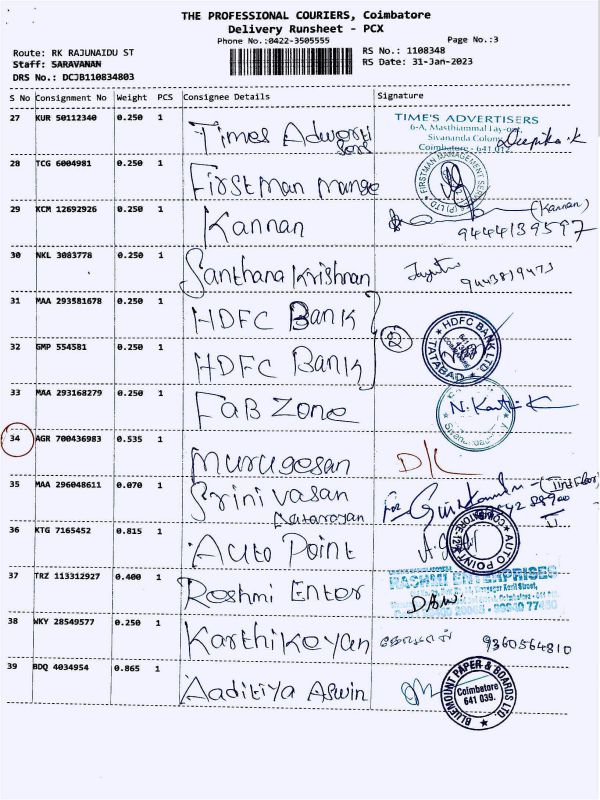 THE PROFESSIONAL COURIERS, Coimbatore
Delivery Runsheet - PCX
Phone No.:0422-3505555
Page No.:3
Route: RK RAJUNAIDU ST
RS No.: 1108348
Staff: SARAVANAN
RS Date: 31-Jan-2023
DRS No.: DCJB110834803
S No Consignment No Weight PCS Consignee Details Signature
27 KUR 50112340 0.250 1
Times Adverti
TIME'S ADVERTISERS
6-A, Masthiammal Lay-out,
Sivananda Colony
Coimbatore - 641 012
Deepika.K
28 TCG 6004981 0.250 1
Firstman mange
FIRSTMAN MANAGEMENT SERV (P) LTD
29 KCM 12692926 0.250 1
Kannan
(Kannan)
9444139597
30 NKL 3083778 0.250 1
Santhana Krishnan
9443819473
31 MAA 293581678 0.250 1
HDFC Bank
2
HDFC BANK LTD.
TATABAD
32 GMP 554581 0.250 1
HDFC Bank
33 MAA 293168279 0.250 1
FaB Zone
N. Karthik
34 AGR 700436983 0.535 1
Murugesan
D/L
35 MAA 296048611 0.070 1
Srinivasan
Natarayan
For
36 KTG 7165452 0.815 1
Auto Point
AUTO POINT
COIMBATORE-12
37 TRZ 113312927 0.400 1
Reshmi Enter
RASHMI ENTERPRISES
38 WKY 28549577 0.250 1
Karthikeyan
9360564810
39 BDQ 4034954 0.865 1
Aaditiya Aswin
BLUEMOUNT PAPER & BOARDS LTD.
Coimbatore
641 039.